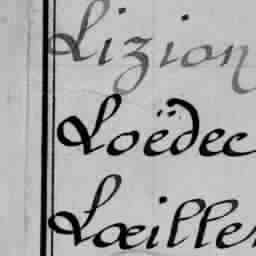 Lizion
Loëdec
Lœiller